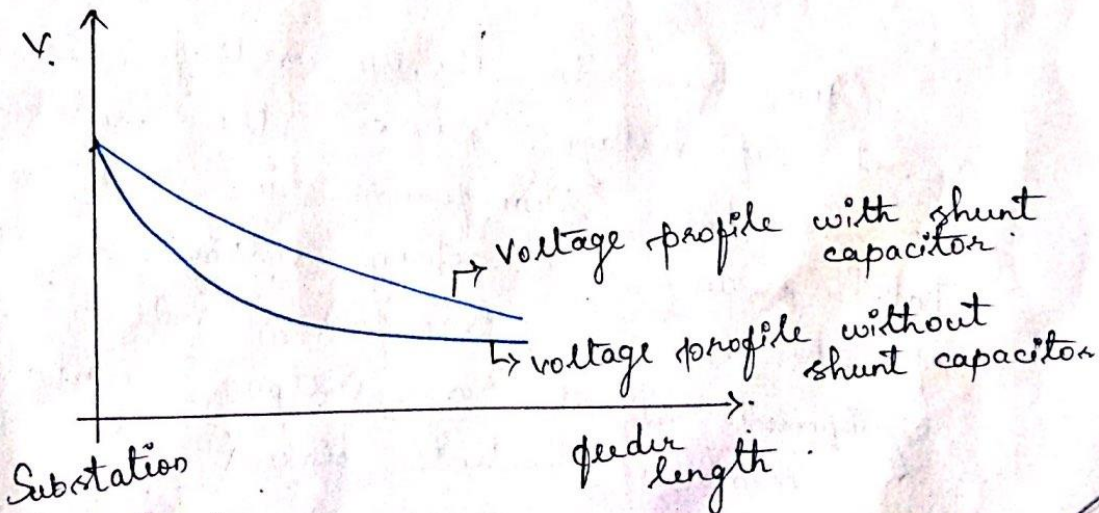 V.
voltage profile with shunt
capacitor.
voltage profile without
shunt capacitor
Substation
feeder
length.